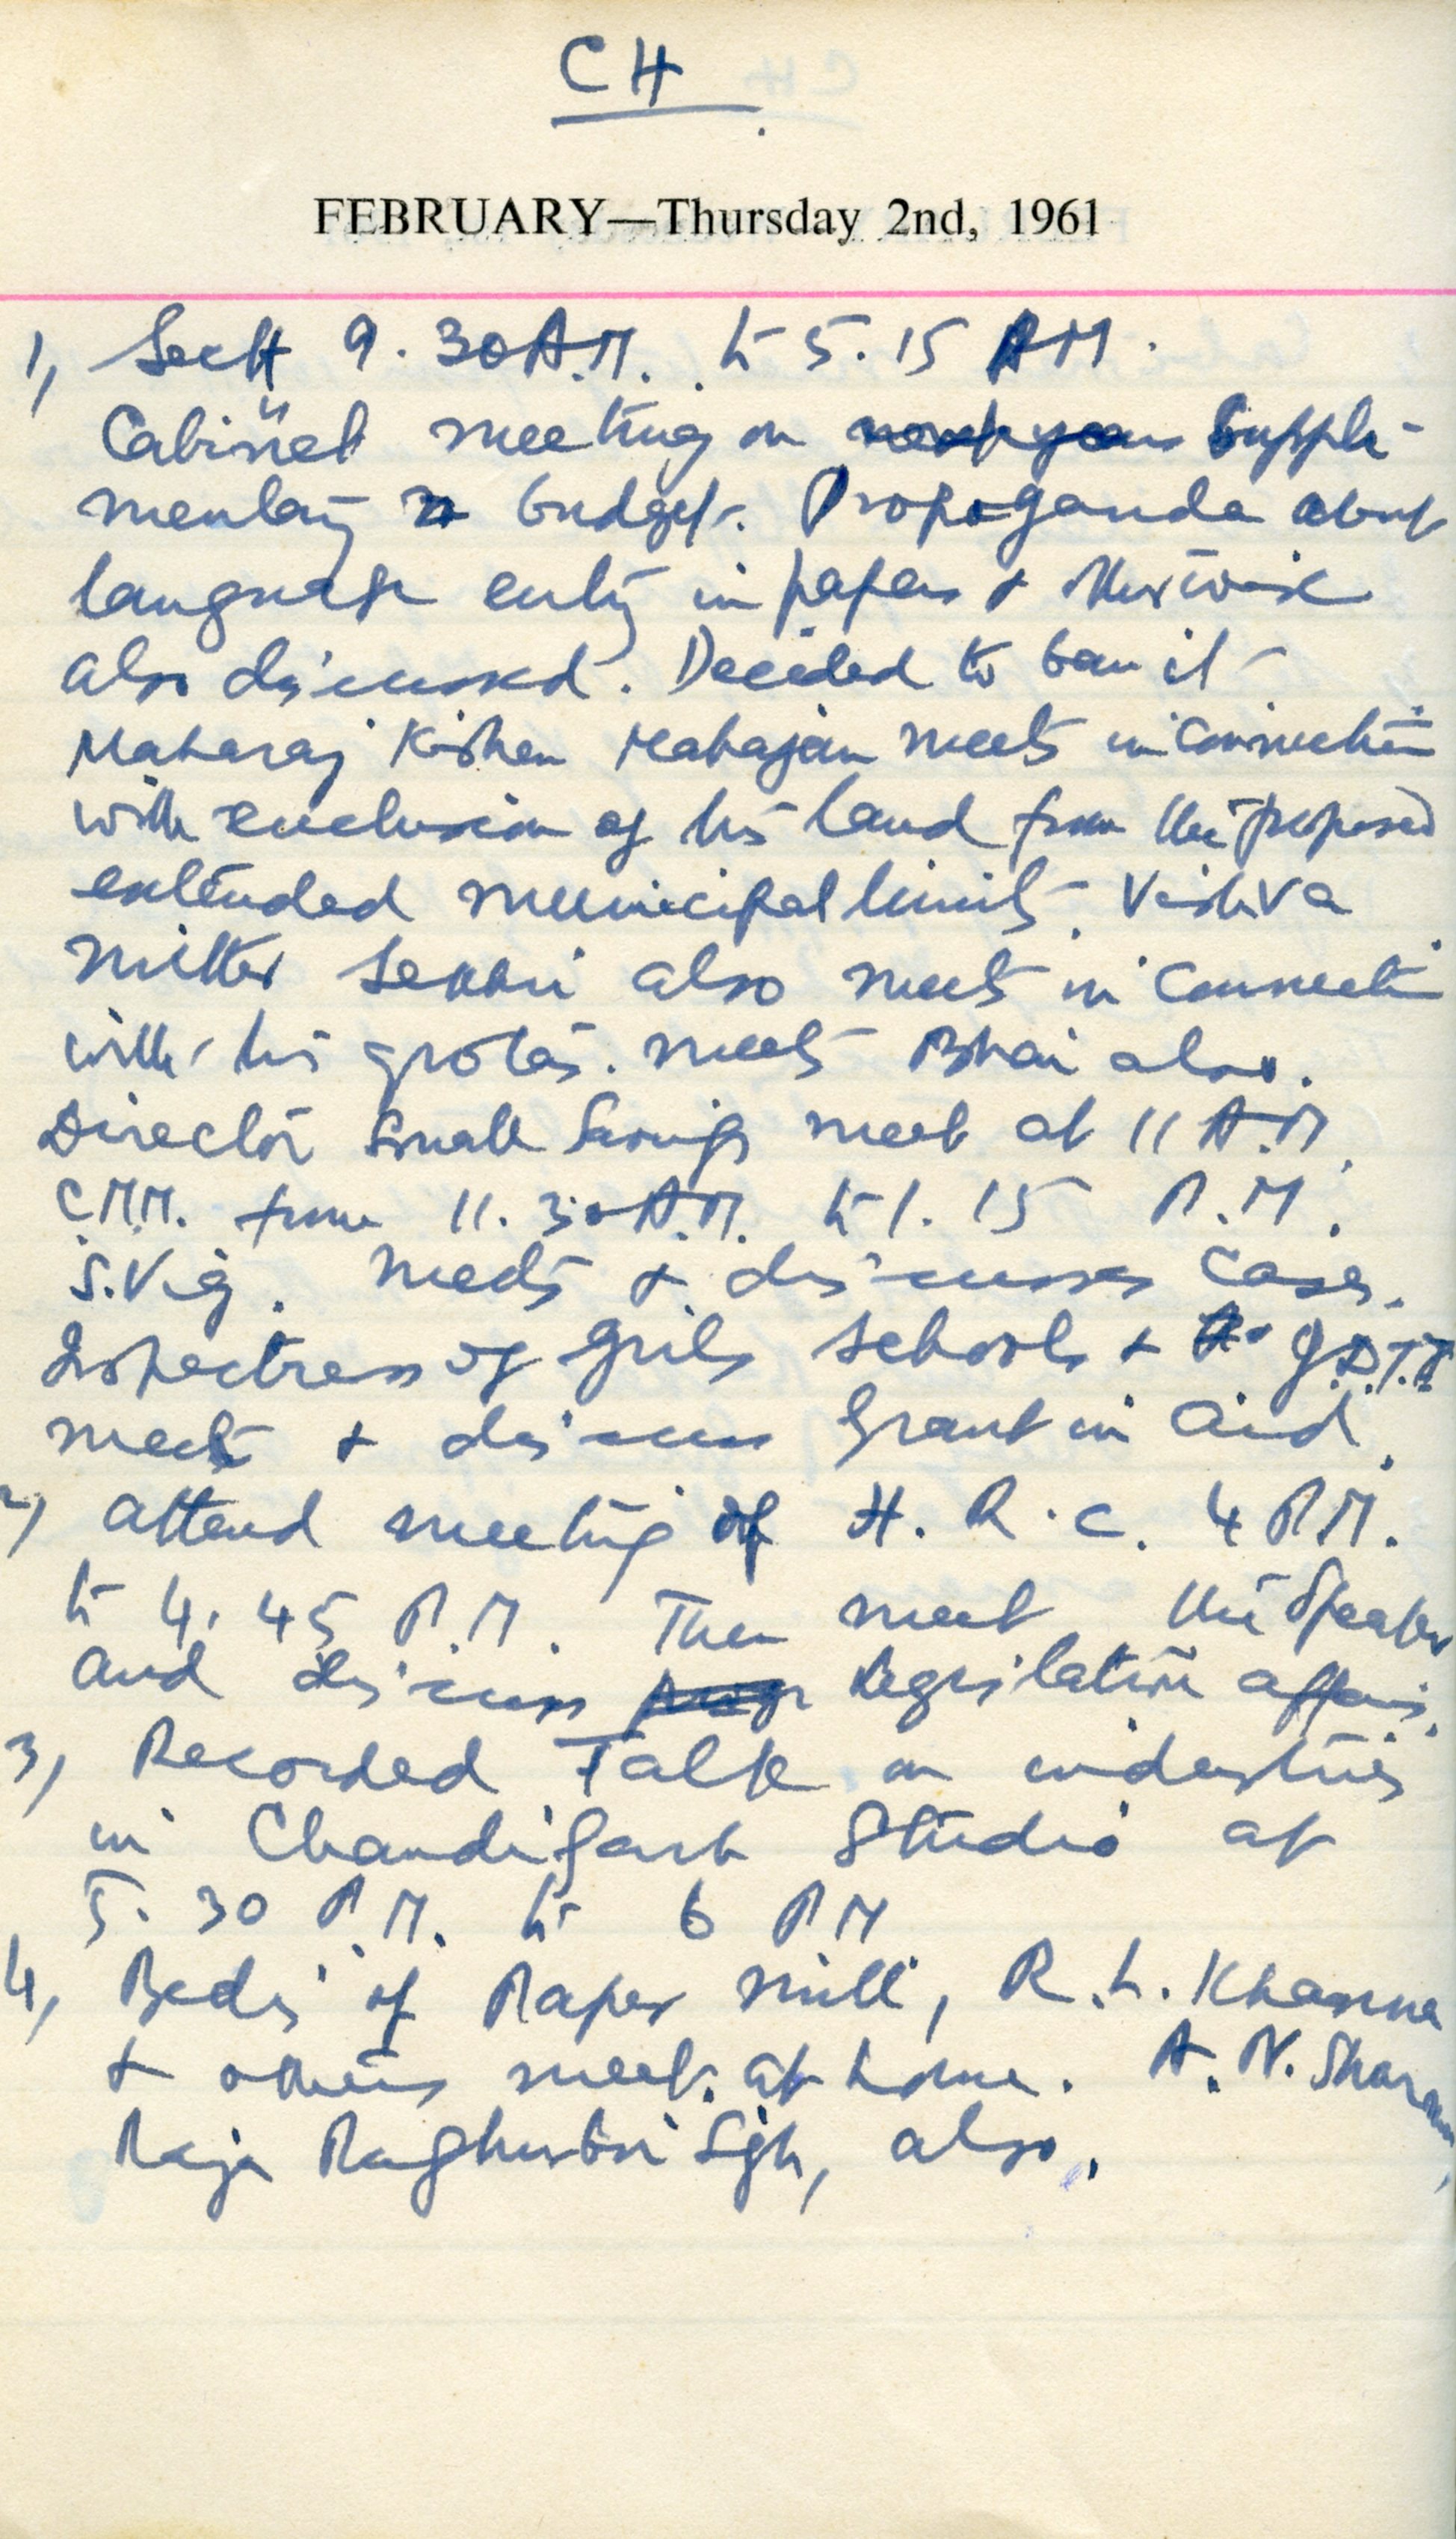 CH
FEBRUARY—Thursday 2nd, 1961
1, Sectt 9.30 A.M. to 5.15 PM.
Cabinet meeting on Supple-
mentary budget. Propoganda about
language entry in papers + otherwise
also discussed. Decided to ban it
Maharaj Kishen Mahajan meets in connection
with exclusion of his land from the proposed
extended municipal limits. Vishva
Mitter Sekhri also meets in connection
with his meets Bhai also.
Director Small Savings meet at 11 A.M.
C.M.M. from 11.30 A.M. to 1.15 P.M.
S.Vig. meets + discusses cases.
Inspectress of Girls Schools +
meet + discuss Grant in Aid.
2, Attend meeting of H.R.C. 4 P.M.
to 4.45 P.M. Then meet the Speaker
and discuss Legislation affairs.
3, Recorded Talk on industries
in Chandigarh Studio at
5.30 P.M. to 6 PM
4, Bedi of Paper Mill, R.L. Khanna
+ others meet at home. A.N. Sharma,
Raja Raghubir Sgh, also.